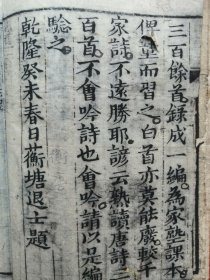 三百餘首録成一編為家塾課本
俾童而習之白首亦莫能廢較千
家詩不遠勝耶諺云熟讀唐詩三
百首不會吟詩也會吟請以是編
驗之
乾隆癸未春日蘅塘退士題